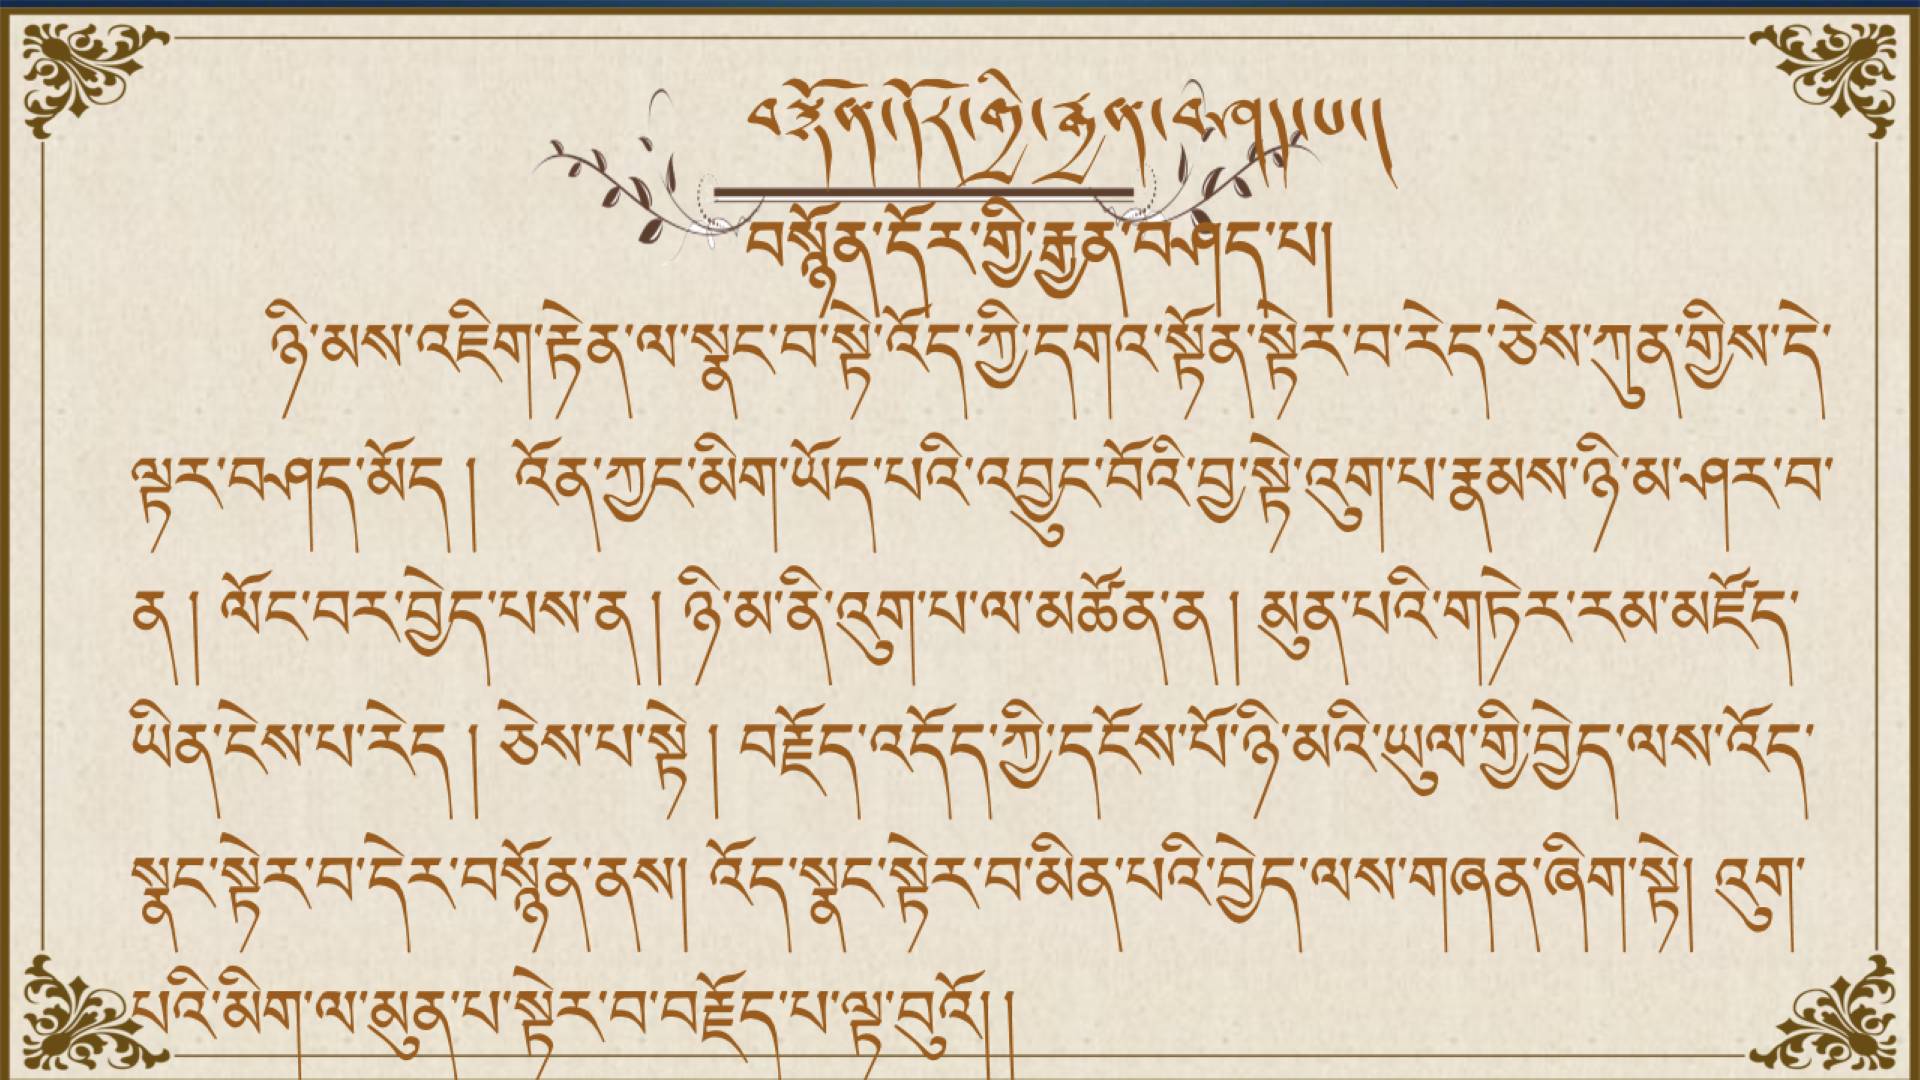 བསྙོན་དོར་གྱི་རྒྱན་བཤད་པ།
བསྙོན་དོར་གྱི་རྒྱན་བཤད་པ།
ཉི་མས་འཇིག་རྟེན་ལ་སྣང་བ་སྟེ་འོད་ཀྱི་དགའ་སྟོན་སྟེར་བ་རེད་ཅེས་ཀུན་གྱིས་དེ་
ལྟར་བཤད་མོད། འོན་ཀྱང་མིག་ཡོད་པའི་འབྱུང་བོའི་བྱ་སྟེ་འུག་པ་རྣམས་ཉི་མ་ཤར་བ་
ན། ལོང་བར་བྱེད་པས་ན། ཉི་མ་ནི་འུག་པ་ལ་མཚོན་ན། མུན་པའི་གཏེར་རམ་མཛོད་
ཡིན་ངེས་པ་རེད། ཅེས་པ་སྟེ། བརྗོད་འདོད་ཀྱི་དངོས་པོ་ཉི་མའི་ཡུལ་གྱི་བྱེད་ལས་འོད་
སྣང་སྟེར་བ་དེར་བསྙོན་ནས། འོད་སྣང་སྟེར་བ་མིན་པའི་བྱེད་ལས་གཞན་ཞིག་སྟེ། འུག་
པའི་མིག་ལ་མུན་པ་སྟེར་བ་བརྗོད་པ་ལྟ་བུའོ།།